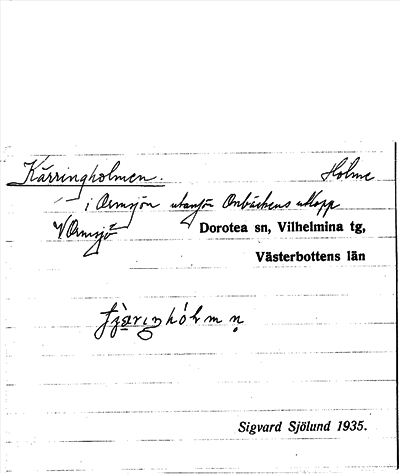 Kärringholmen. Holme
i Ormsjön utanför Onbäckens utlopp
V Ormsjö Dorotea sn, Vilhelmina tg,
Västerbottens län
Sigvard Sjölund 1935.